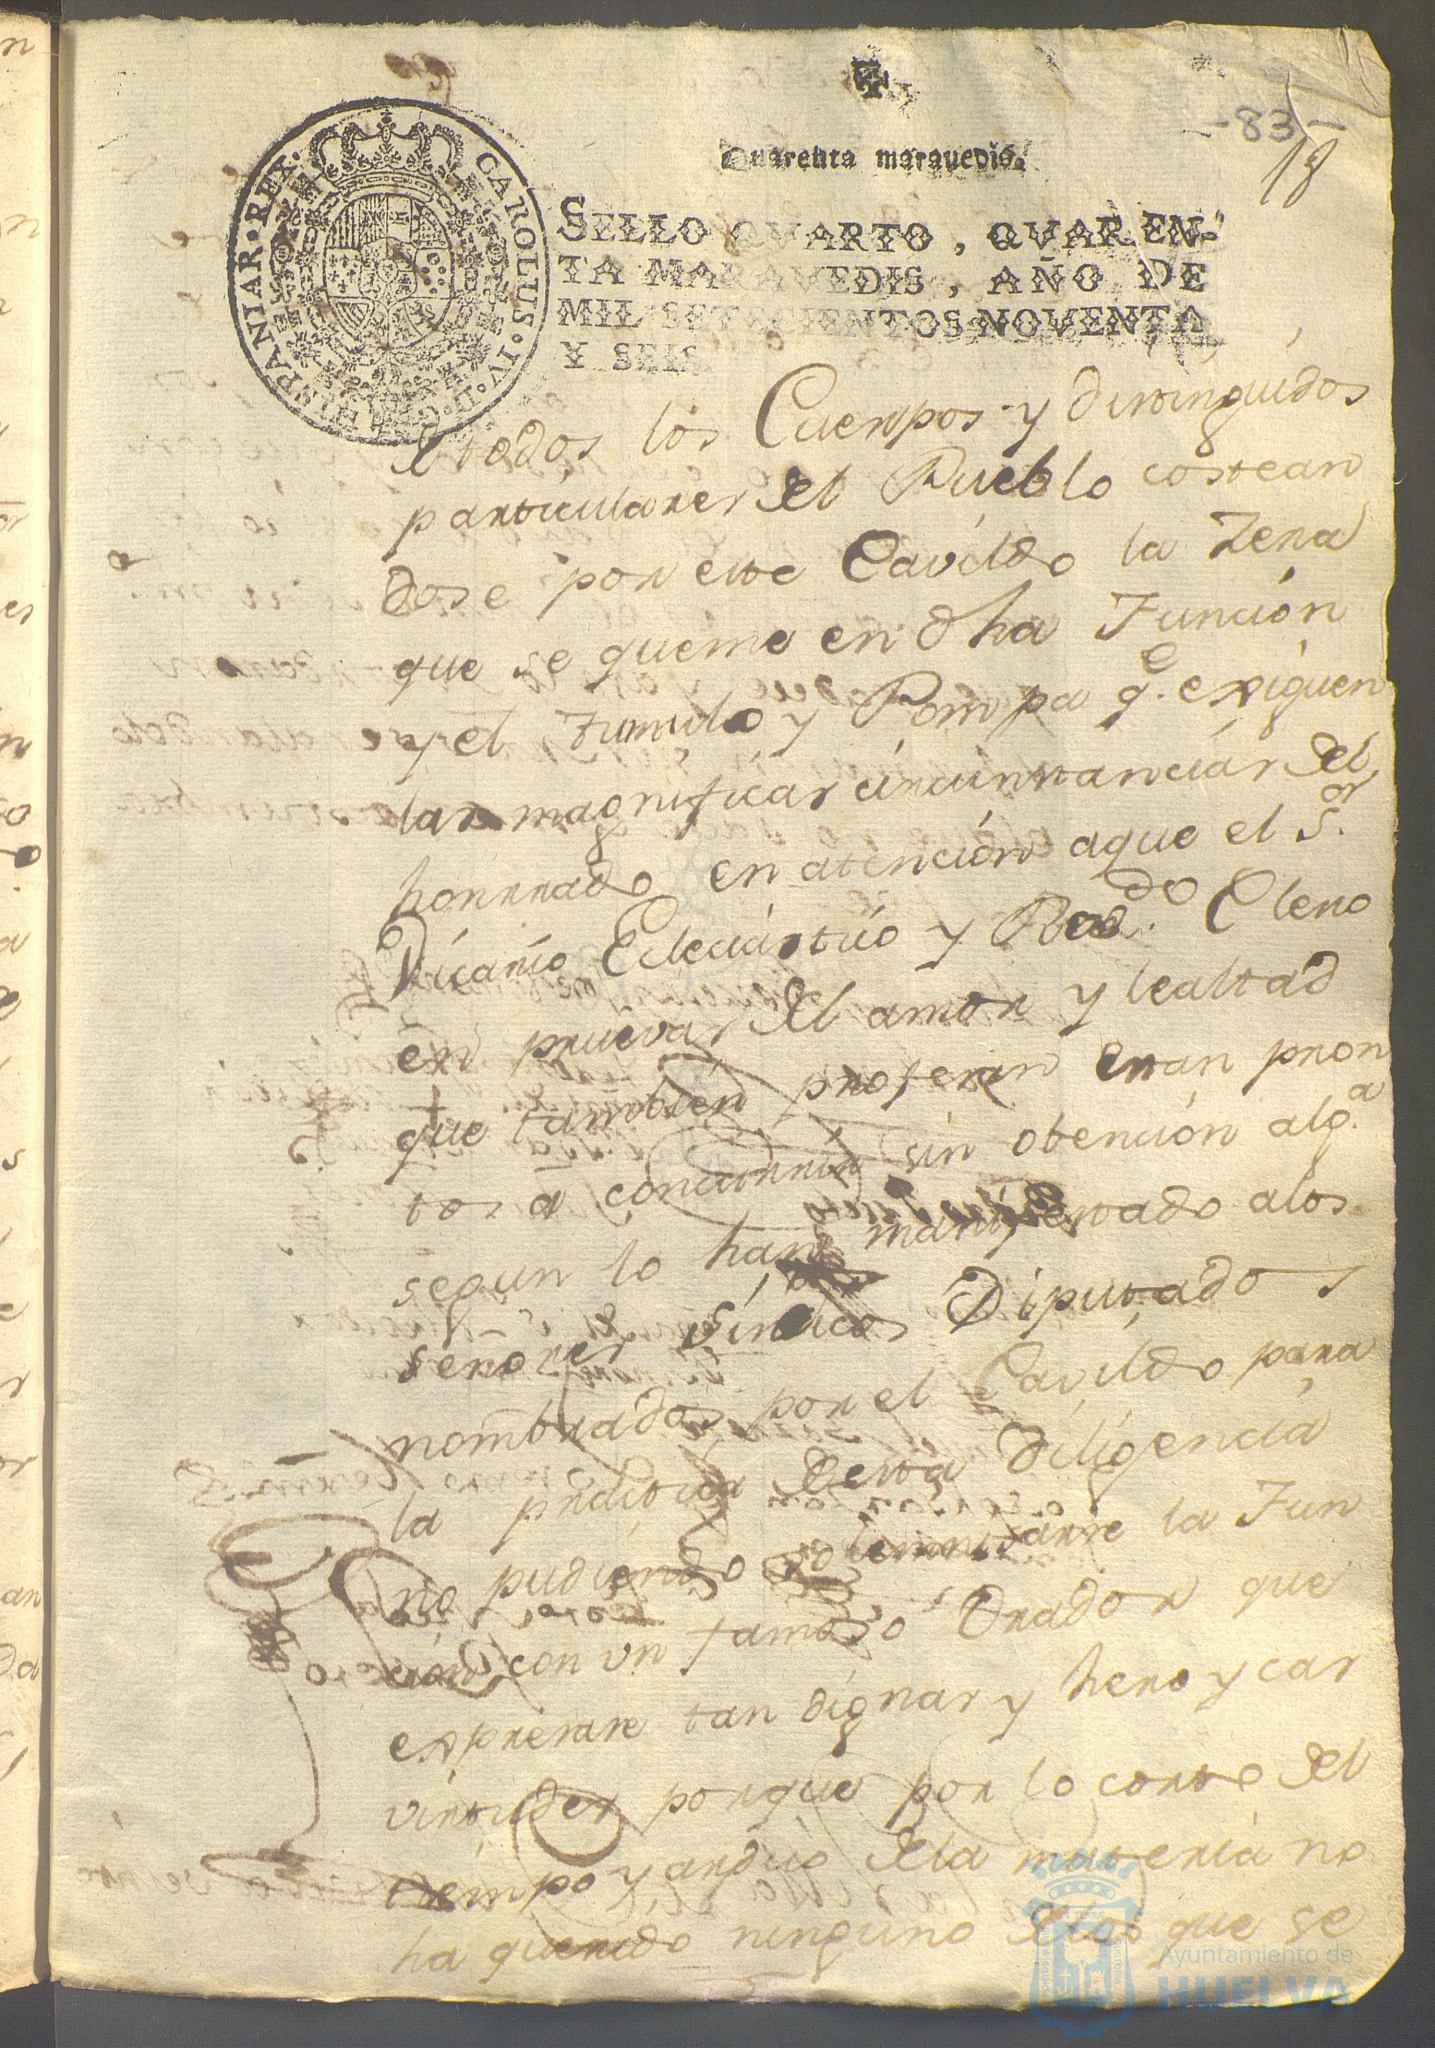 -83-
18
Quarenta marauedis.
SELLO QVARTO, QVAREN-
TA MARAVEDIS, AÑO DE
MIL SETECIENTOS NOVENTA
Y SEIS.
CAROLUS·IV·D·G·HISPANIAR·REX·
todos los Cuerpos y distinguidos
particulares del Pueblo costean
dose por este Cavildo la Zera
que se queme en dha Función
y el Tumulo y Pompa q.e exiguen
las magnificas circunstancias del
honrrado en atención aque el S.or
Vicario Eclesiastico y Ve.do Clero
en pruevas del amor y lealtad
que tambien profesan eran pron
tos a concurrir sin obención alg.a
segun lo han manifestado alos
señores Síndicos Diputados
nombrados por el Cavildo para
la práctica desta diligencia
no pudiendo solemnisarse la Fun
ción con un famoso Orador que
expresare tan dignas y heroycas
virtudes porque por lo corto del
tiempo y arduo dela materia no
ha querido ninguno delos que se
Ayuntamiento de
HUELVA